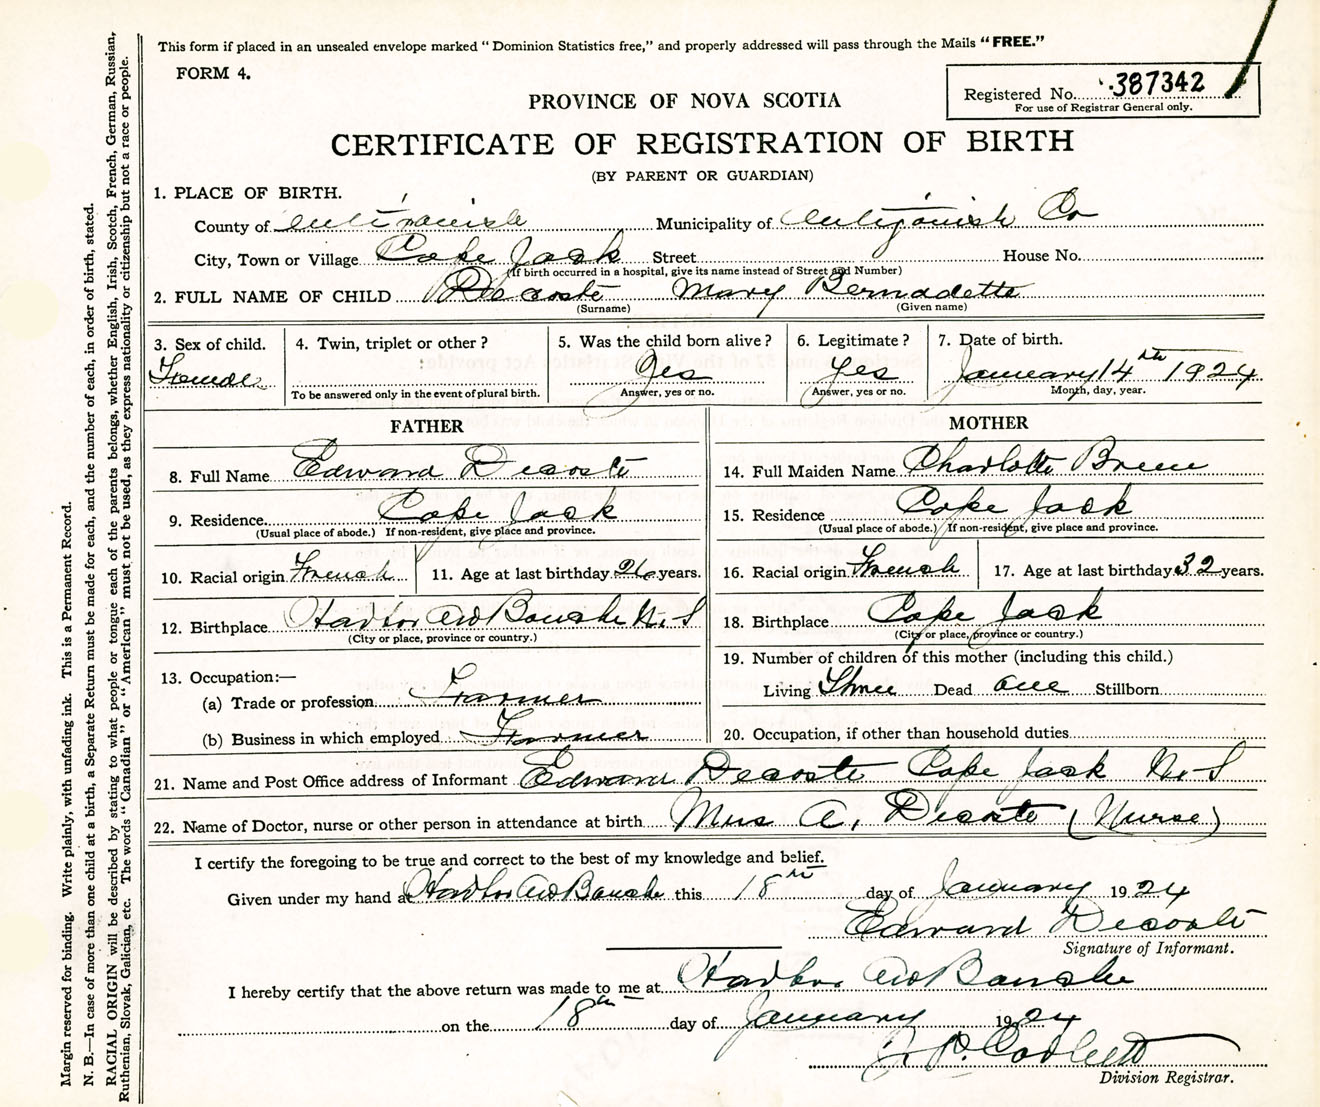 This form if placed in an unsealed envelope marked “Dominion Statistics free,” and properly addressed will pass through the Mails “FREE.”
FORM 4.
Registered No. 387342
For use of Registrar General only.
PROVINCE OF NOVA SCOTIA
CERTIFICATE OF REGISTRATION OF BIRTH
(BY PARENT OR GUARDIAN)
1. PLACE OF BIRTH.
County of Antigonish Municipality of Antigonish Co
City, Town or Village Cape Jack Street House No.
(If birth occurred in a hospital, give its name instead of Street and Number)
2. FULL NAME OF CHILD Decoste Mary Bernadette
(Surname) (Given name)
3. Sex of child. 4. Twin, triplet or other? 5. Was the child born alive? 6. Legitimate? 7. Date of birth.
Female Yes Yes January 14th 1924
To be answered only in the event of plural birth. Answer, yes or no. Answer, yes or no. Month, day, year.
FATHER
8. Full Name Edward Decoste
9. Residence Cape Jack
(Usual place of abode.) If non-resident, give place and province.
10. Racial origin French 11. Age at last birthday years.
12. Birthplace Harbor au Bouche N.S
(City or place, province or country.)
13. Occupation:—
(a) Trade or profession Farmer
(b) Business in which employed Farmer
MOTHER
14. Full Maiden Name Charlotte
15. Residence Cape Jack
(Usual place of abode.) If non-resident, give place and province.
16. Racial origin French 17. Age at last birthday 32 years.
18. Birthplace Cape Jack
(City or place, province or country.)
19. Number of children of this mother (including this child.)
Living Three Dead one Stillborn
20. Occupation, if other than household duties
21. Name and Post Office address of Informant Edward Decoste Cape Jack N.S
22. Name of Doctor, nurse or other person in attendance at birth Mrs A. Decoste (Nurse)
I certify the foregoing to be true and correct to the best of my knowledge and belief.
Given under my hand at Harbor au Bouche this 18th day of January 1924
Edward Decoste
Signature of Informant.
I hereby certify that the above return was made to me at Harbor au Bouche
on the 18th day of January 1924
P. Corbett
Division Registrar.
Margin reserved for binding. Write plainly, with unfading ink. This is a Permanent Record.
N. B.—In case of more than one child at a birth, a Separate Return must be made for each, and the number of each, in order of birth, stated.
RACIAL ORIGIN will be described by stating to what people or tongue each of the parents belongs, whether English, Irish, Scotch, French, German, Russian,
Ruthenian, Slovak, Galician, etc. The words “Canadian” or “American” must not be used, as they express nationality or citizenship but not a race or people.